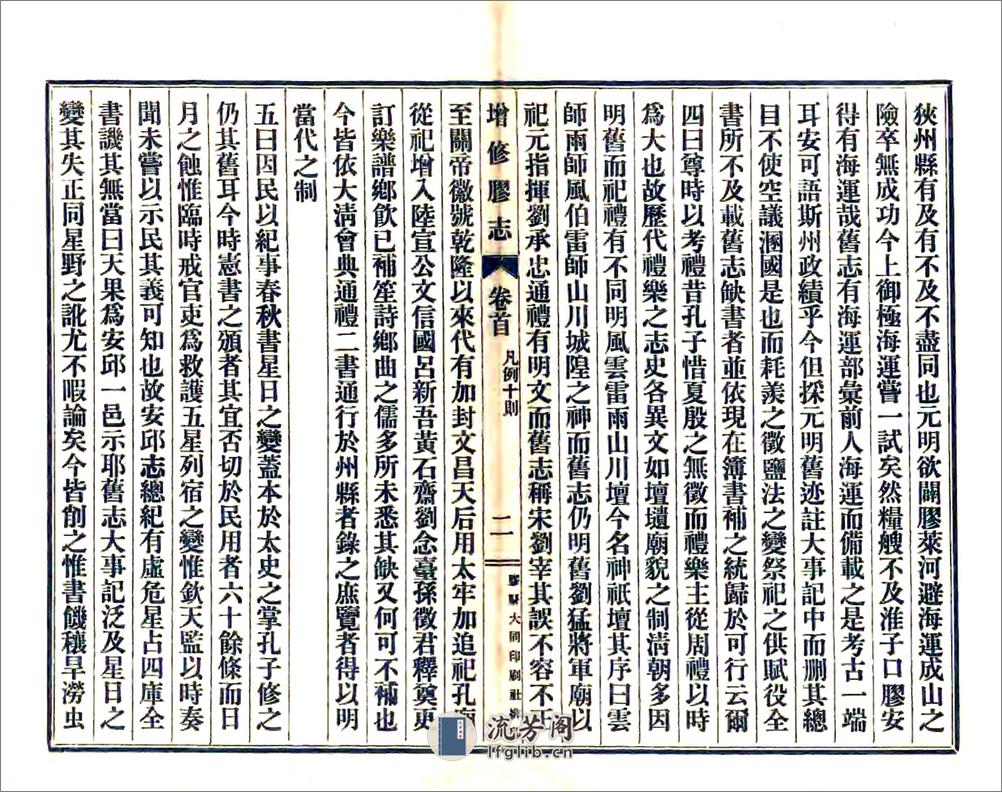 狹州縣有及有不及不盡同也元明欲闢膠萊河避海運成山之
險卒無成功今上御極海運嘗一試矣然糧艘不及淮子口膠安
得有海運哉舊志有海運部彙前人海運而備載之是考古一端
耳安可語斯州政績乎今但採元明舊迹註大事記中而刪其總
目不使空議溷國是也而耗羨之徵鹽法之變祭祀之供賦役全
書所不及載舊志缺書者並依現在簿書補之統歸於可行云爾
四曰尊時以考禮昔孔子惜夏殷之無徵而禮樂主從周禮以時
爲大也故歷代禮樂之志史各異文如壇壝廟貌之制清朝多因
明舊而祀禮有不同明風雲雷雨山川壇今名神祇壇其序曰雲
師雨師風伯雷師山川城隍之神而舊志仍明舊劉猛將軍廟以
祀元指揮劉承忠通禮有明文而舊志稱宋劉宰其誤不容不正
增修膠志 卷首 凡例十則 二 膠縣大同印刷社
至關帝徽號乾隆以來代有加封文昌天后用太牢加追祀孔廟
從祀增入陸宣公文信國呂新吾黃石齋劉念臺孫徵君釋奠更
訂樂譜鄉飲已補笙詩鄉曲之儒多所未悉其缺又何可不補也
今皆依大清會典通禮二書通行於州縣者錄之庶覽者得以明
當代之制
五曰因民以紀事春秋書星日之變蓋本於太史之掌孔子修之
仍其舊耳今時憲書之頒者其宜否切於民用者六十餘條而日
月之蝕惟臨時戒官吏爲救護五星列宿之變惟欽天監以時奏
聞未嘗以示民其義可知也故安邱志總紀有虛危星占四庫全
書譏其無當曰天果爲安邱一邑示耶舊志大事記泛及星日之
變其失正同星野之訛尤不暇論矣今皆削之惟書饑穰旱澇虫
流芳阁
lfglib.cn